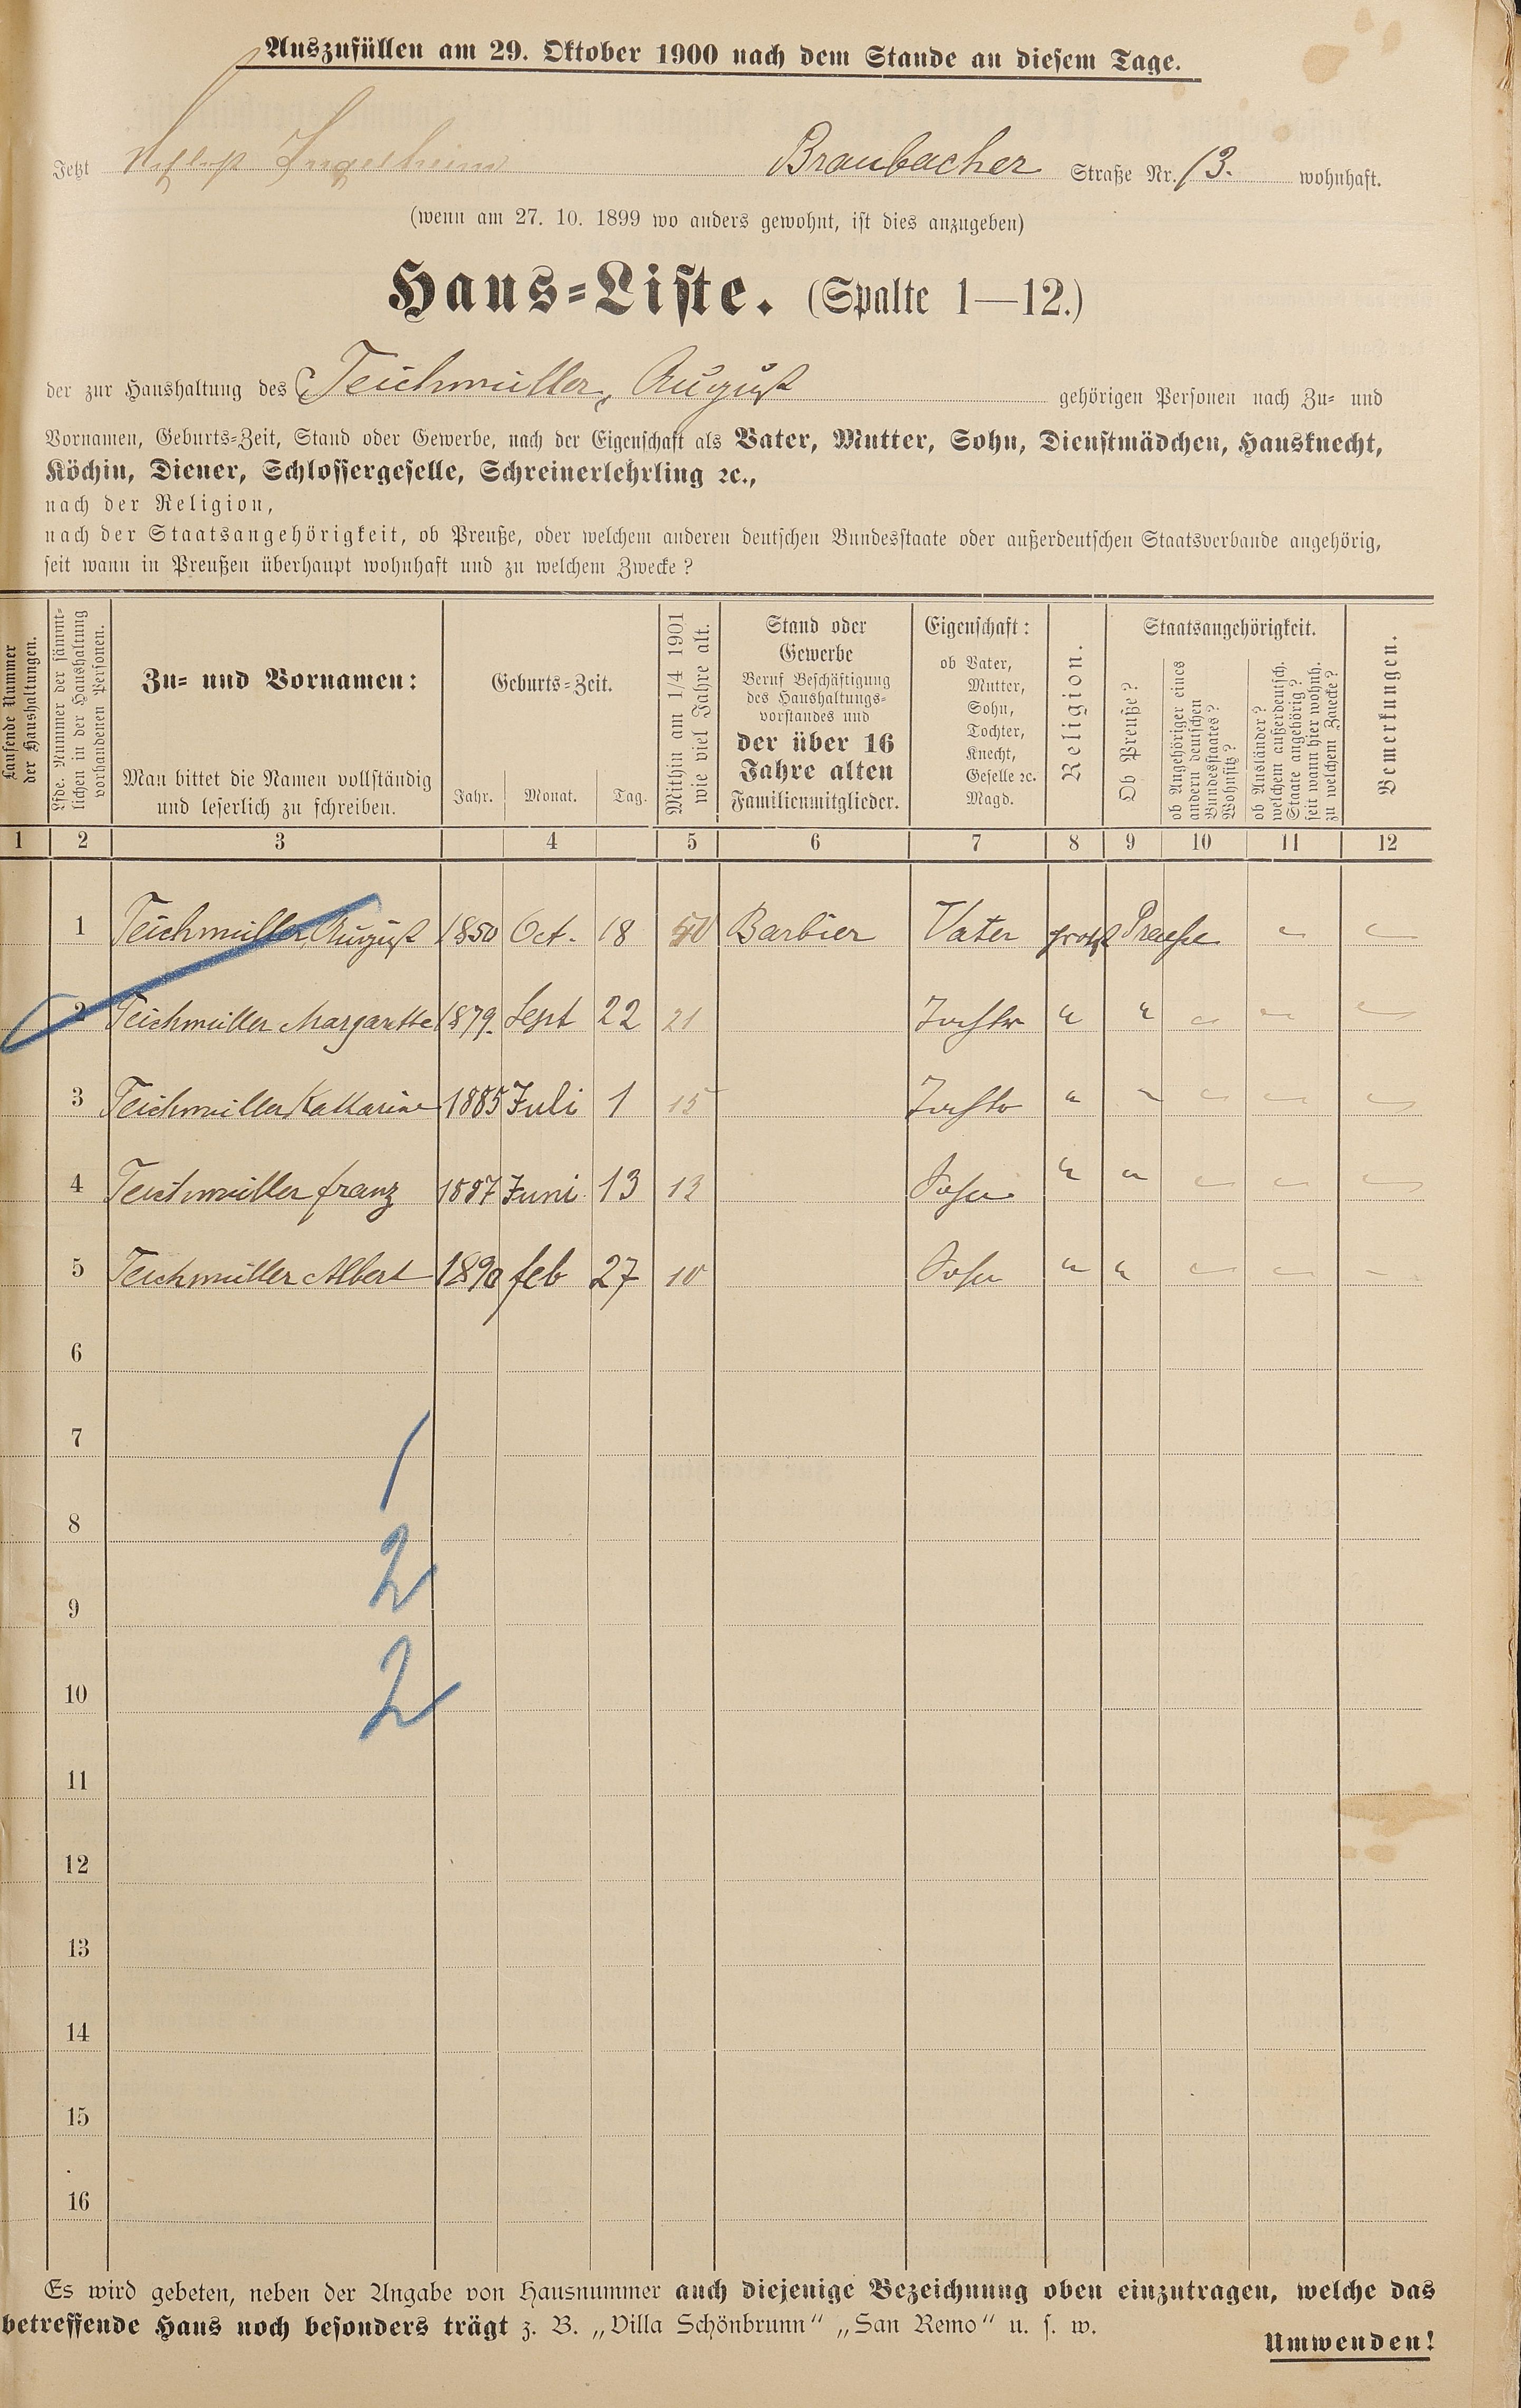 Auszufüllen am 29. Oktober 1900 nach dem Stande an diesem Tage.
Jetzt Ingelheim Braubacher Straße Nr. 13. wohnhaft.
(wenn am 27. 10. 1899 wo anders gewohnt, ist dies anzugeben)
Haus-Liste. (Spalte 1—12.)
der zur Haushaltung des Teichmüller, August gehörigen Personen nach Zu- und
Vornamen, Geburts-Zeit, Stand oder Gewerbe, nach der Eigenschaft als Vater, Mutter, Sohn, Dienstmädchen, Hausknecht,
Köchin, Diener, Schlossergeselle, Schreinerlehrling ꝛc.,
nach der Religion,
nach der Staatsangehörigkeit, ob Preuße, oder welchem anderen deutschen Bundesstaate oder außerdeutschen Staatsverbande angehörig,
seit wann in Preußen überhaupt wohnhaft und zu welchem Zwecke?
Laufende Nummer
der Haushaltungen.
Lfde. Nummer der sämmt-
lichen in der Haushaltung
vorhandenen Personen.
Zu- und Vornamen:
Man bittet die Namen vollständig
und leserlich zu schreiben.
Geburts-Zeit.
Jahr. Monat. Tag.
Mithin am 1/4 1901
wie viel Jahre alt.
Stand oder
Gewerbe
Beruf Beschäftigung
des Haushaltungs-
vorstandes und
der über 16
Jahre alten
Familienmitglieder.
Eigenschaft:
ob Vater,
Mutter,
Sohn,
Tochter,
Knecht,
Geselle ꝛc.
Magd.
Religion.
Staatsangehörigkeit.
Ob Preuße?
ob Angehöriger eines
andern deutschen
Bundesstaates?
Wohnsitz?
ob Ausländer?
welchem außerdeutsch.
Staate angehörig?
seit wann hier wohnh.
zu welchem Zwecke?
Bemerkungen.
1 2 3 4 5 6 7 8 9 10 11 12
1 Teichmüller August 1850 Oct. 18 50 Barbier Vater prot Preuße " "
2 Teichmüller Margarethe 1879. Sept 22 21 Tochter " " " " "
3 Teichmüller Katharine 1885 Juli 1 15 Tochter " " " " "
4 Teichmüller Franz 1887 Juni 13 13 Sohn " " " " "
5 Teichmüller Albert 1890 feb 27 10 Sohn " " " " "
6
7
1
8
2
9
2
10
11
12
13
14
15
16
Es wird gebeten, neben der Angabe von Hausnummer auch diejenige Bezeichnung oben einzutragen, welche das
betreffende Haus noch besonders trägt z. B. „Villa Schönbrunn“ „San Remo“ u. s. w.
Umwenden!